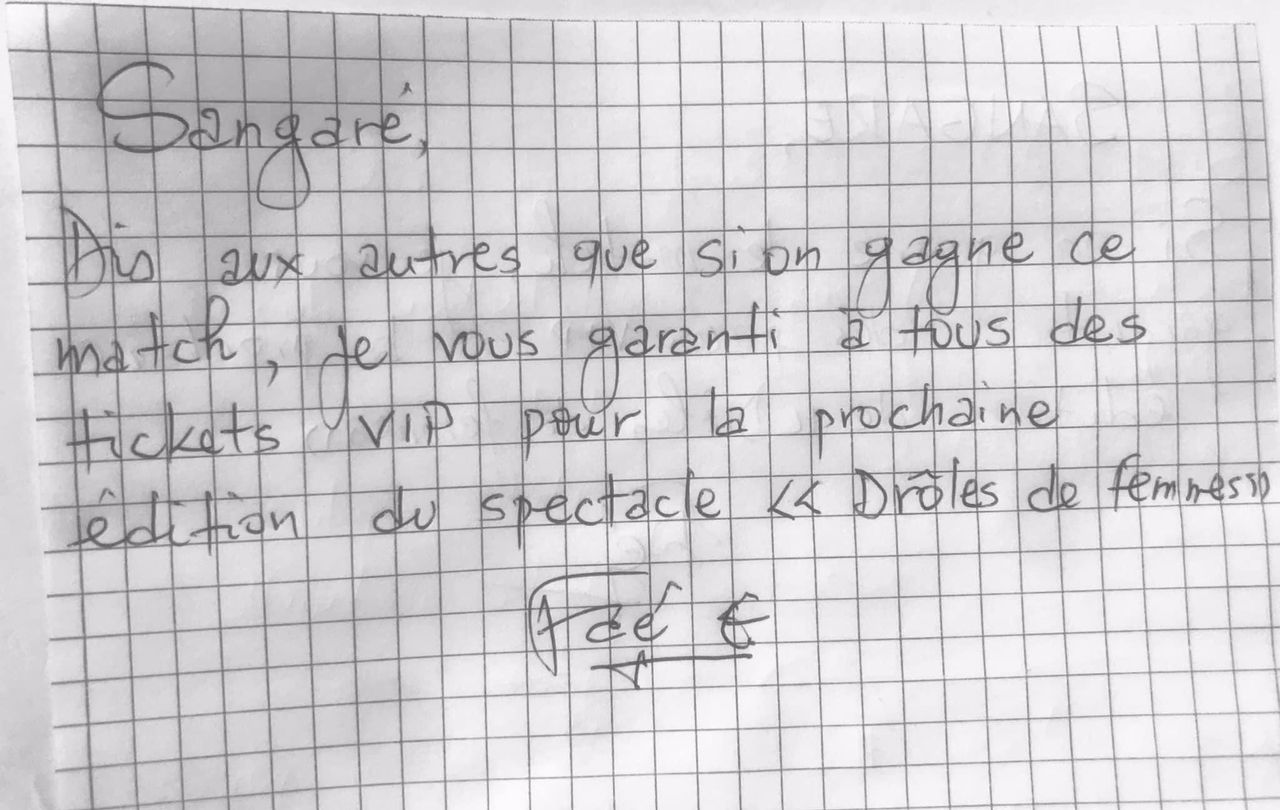 Sangaré,
Dis aux autres que si on gagne ce
match, je vous garanti à tous des
tickets VIP pour la prochaine
édition du spectacle << Drôles de femmes>>